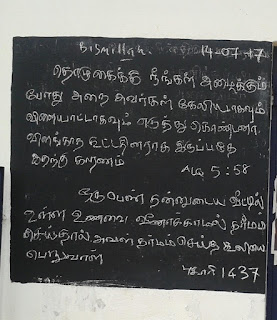 Bismillah. 14-07-17
தொழுகைக்கு நீங்கள் அழைக்கும்
போது அதை அவர்கள் கேலியாகவும்
விளையாட்டாகவும் எடுத்து கொண்டனர்.
விளங்காத கூட்டத்தினராக இருப்பதே
இதற்கு காரணம்
அல் 5:58
ஒரு பெண் தன்னுடைய வீட்டில்
உள்ள உணவை வீணாக்காமல் தர்மம்
செய்தால் அவள் தர்மம் செய்த கூலியை
பெறுவாள்
புகாரி 1437